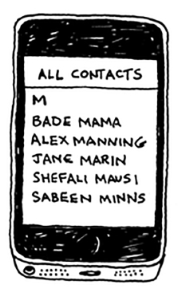 ALL CONTACTS
M
BADE MAMA
ALEX MANNING
JANE MARIN
SHEFALI MAUSI
SABEEN MINNS